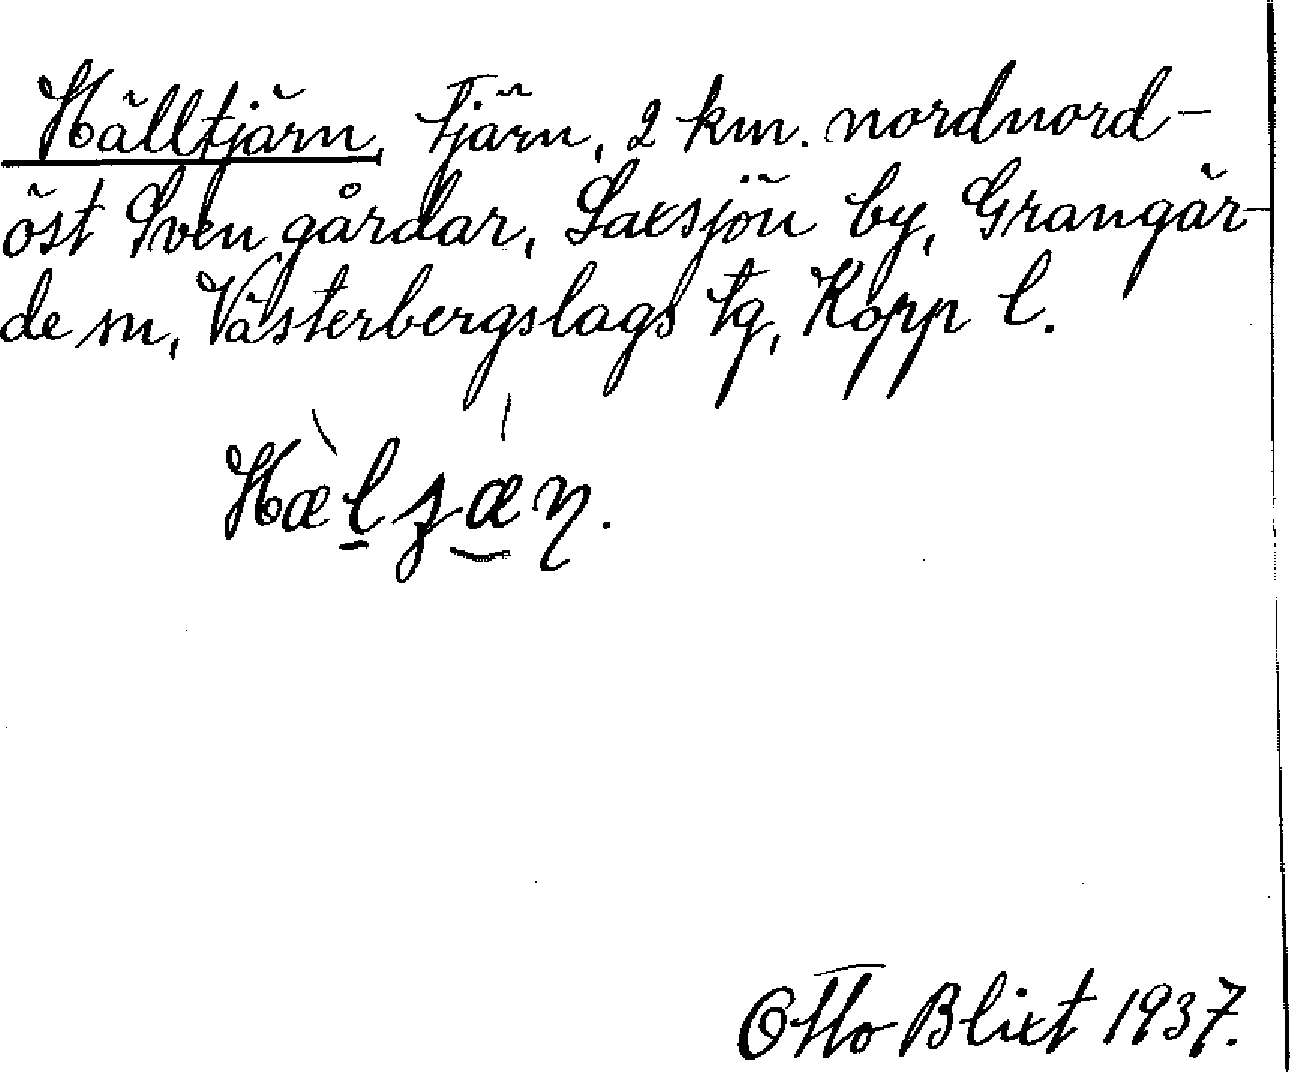 Hälltjärn, Tjärn, 2 km. nordnord-
öst Svengårdar, Saxsjön by, Grangär-
de sn, Västerbergslags tg, Kopp l.
Hæ̀lʒǽɳ.
Otto Blixt 1937.